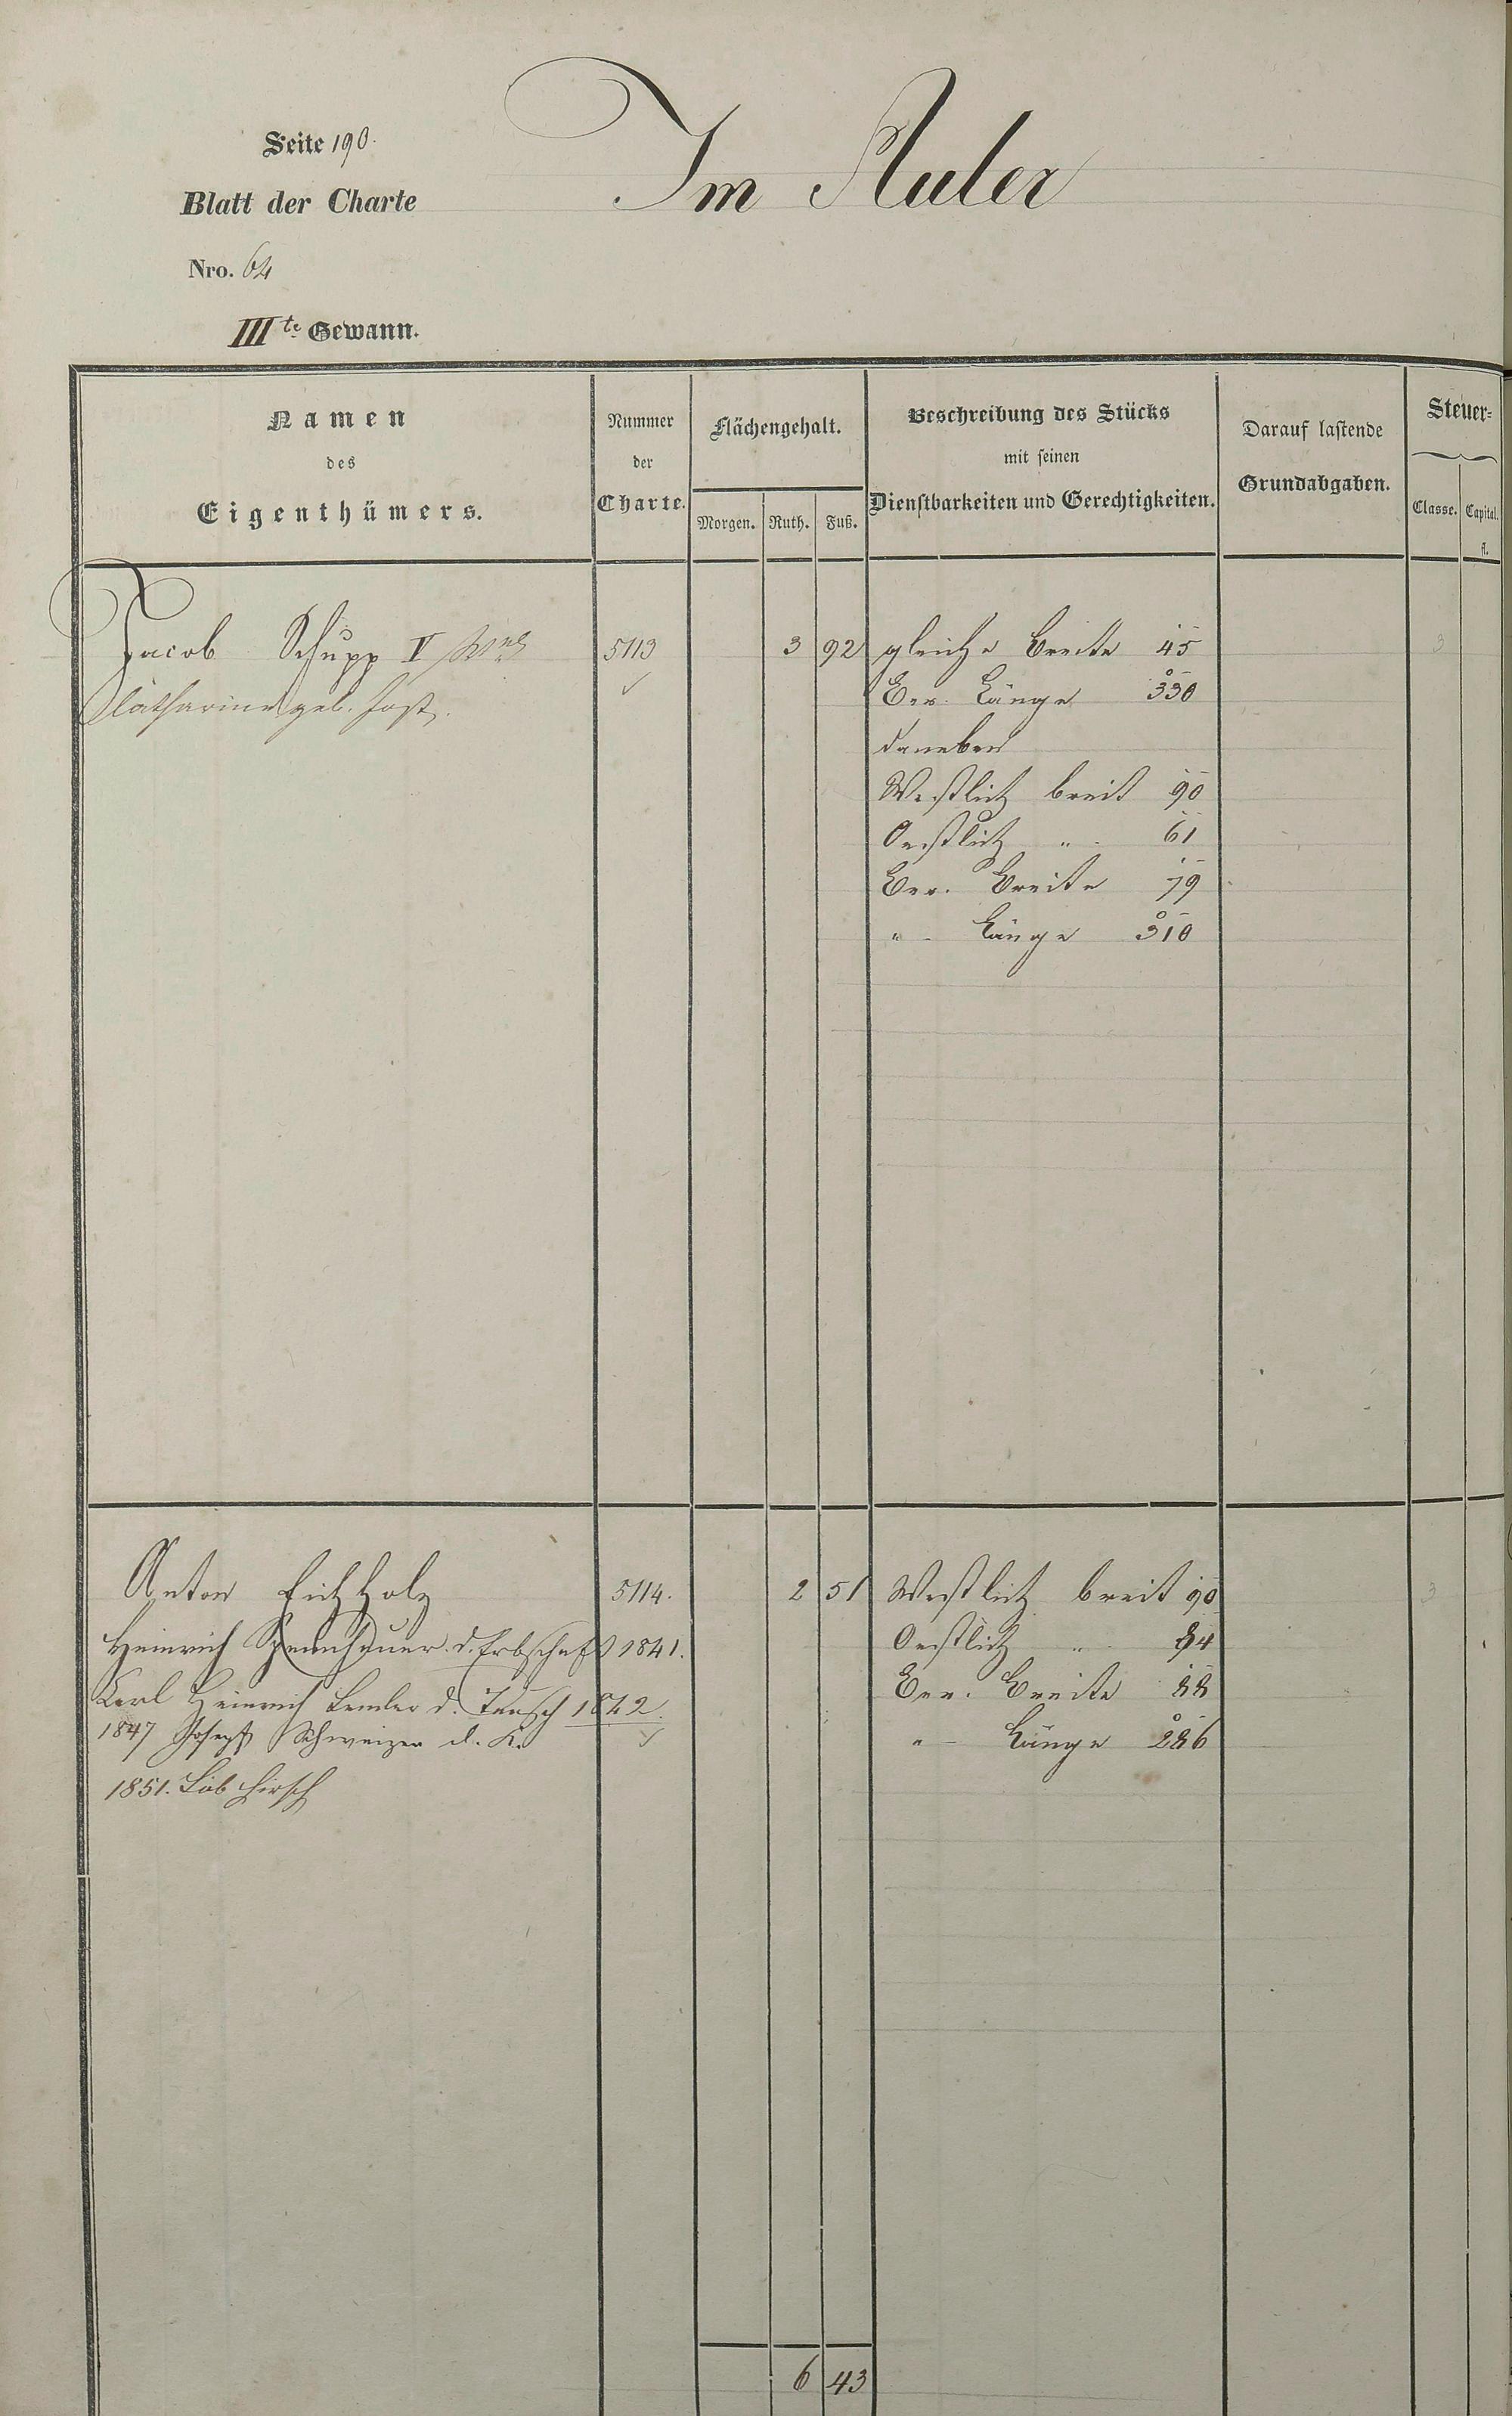 Seite 190.
Im Auler
Blatt der Charte
Nro. 64
III te Gewann.
Namen
des
Eigenthümers.
Nummer
der
Charte.
Flächengehalt.
Morgen. Ruth. Fuß.
Beschreibung des Stücks
mit seinen
Dienstbarkeiten und Gerechtigkeiten.
Darauf lastende
Grundabgaben.
Steuer=
Classe. Capital.
fl.
Jacob Schupp V 5113 3 92 gleiche Breite 45 3
Catharina geb. Jost. Ber. Länge 330
daneben
Westlich breit 90
Oestlich " 61
Ber. Breite 79
" Länge 310
Anton Eichholz 5114. 2 51 Westlich breit 90 3
Heinrich d. Erbschaft 1841. Oestlich " 84
Carl Heinrich d. Tausch 1842. Ber. Breite 88
1847 Joseph Schweizer d. K. " Länge 286
1851. Löb Hirsch
6 43